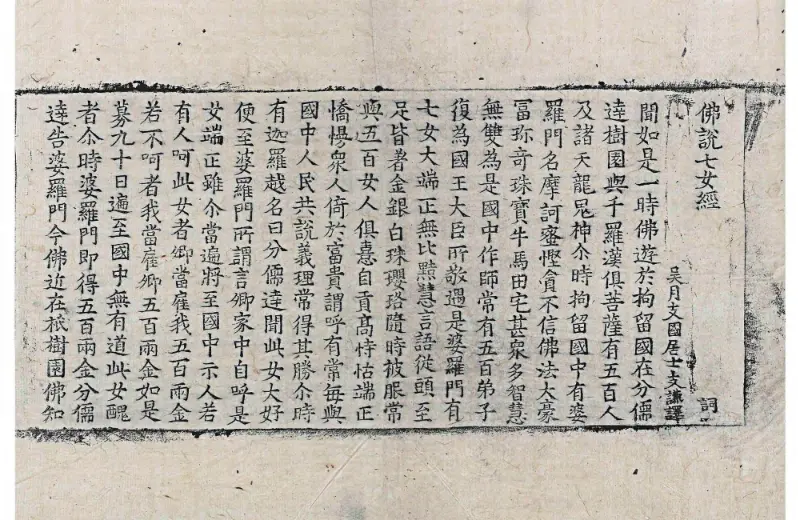 佛說七女經
吳月支國居士支謙譯
詞
聞如是一時佛遊於拘留國在分儒
達樹園與千羅漢俱菩薩有五百人
及諸天龍鬼神尒時拘留國中有婆
羅門名摩訶蜜慳貪不信佛法大豪
冨珎竒珠寶牛馬田宅甚眾多智慧
無雙為是國中作師常有五百弟子
復為國王大臣所敬遇是婆羅門有
七女大端正無比黠慧言語從頭至
足皆著金銀白珠瓔珞隨時被服常
與五百女人俱憙自貢髙恃怙端正
憍慢眾人倚於富貴謂呼有常每與
國中人民共說義理常得其勝尒時
有迦羅越名曰分儒達聞此女大好
便至婆羅門所謂言卿家中自呼是
女端正雖尒當遍將至國中示人若
有人呵此女者卿當雇我五百兩金
若不呵者我當雇卿五百兩金如是
募九十日遍至國中無有道此女醜
者尒時婆羅門即得五百兩金分儒
達告婆羅門今佛近在祇樹園佛知